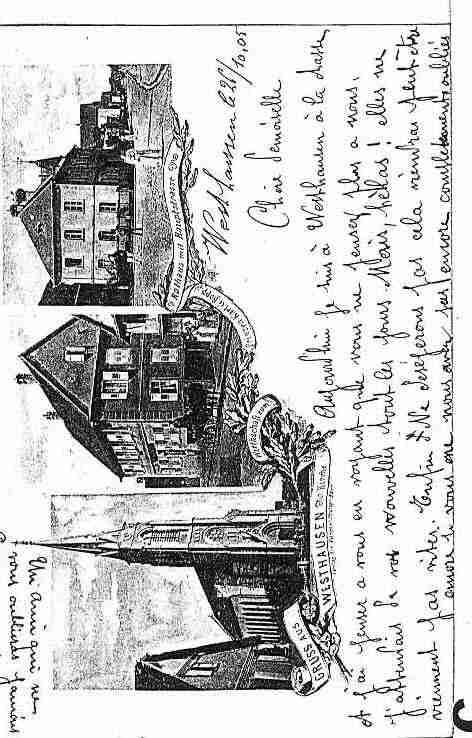 Westhausen le 25/10.05
Chère Demoiselle
Aujourd'hui je suis à Westhausen à la chasse
et j'ai pensé a vous en voyant que vous ne pensez plus a nous.
J'attendais de vos nouvelles tout les jours Mais, hélas! elles ne
viennent pas vites. Enfin Ne désésperons pas cela viendras peut-être
encore si vous ne nous avez pas encore complètement oubliés
Un Ami qui ne
vous oublieras jamais
GRUSS AUS
WESTHAUSEN